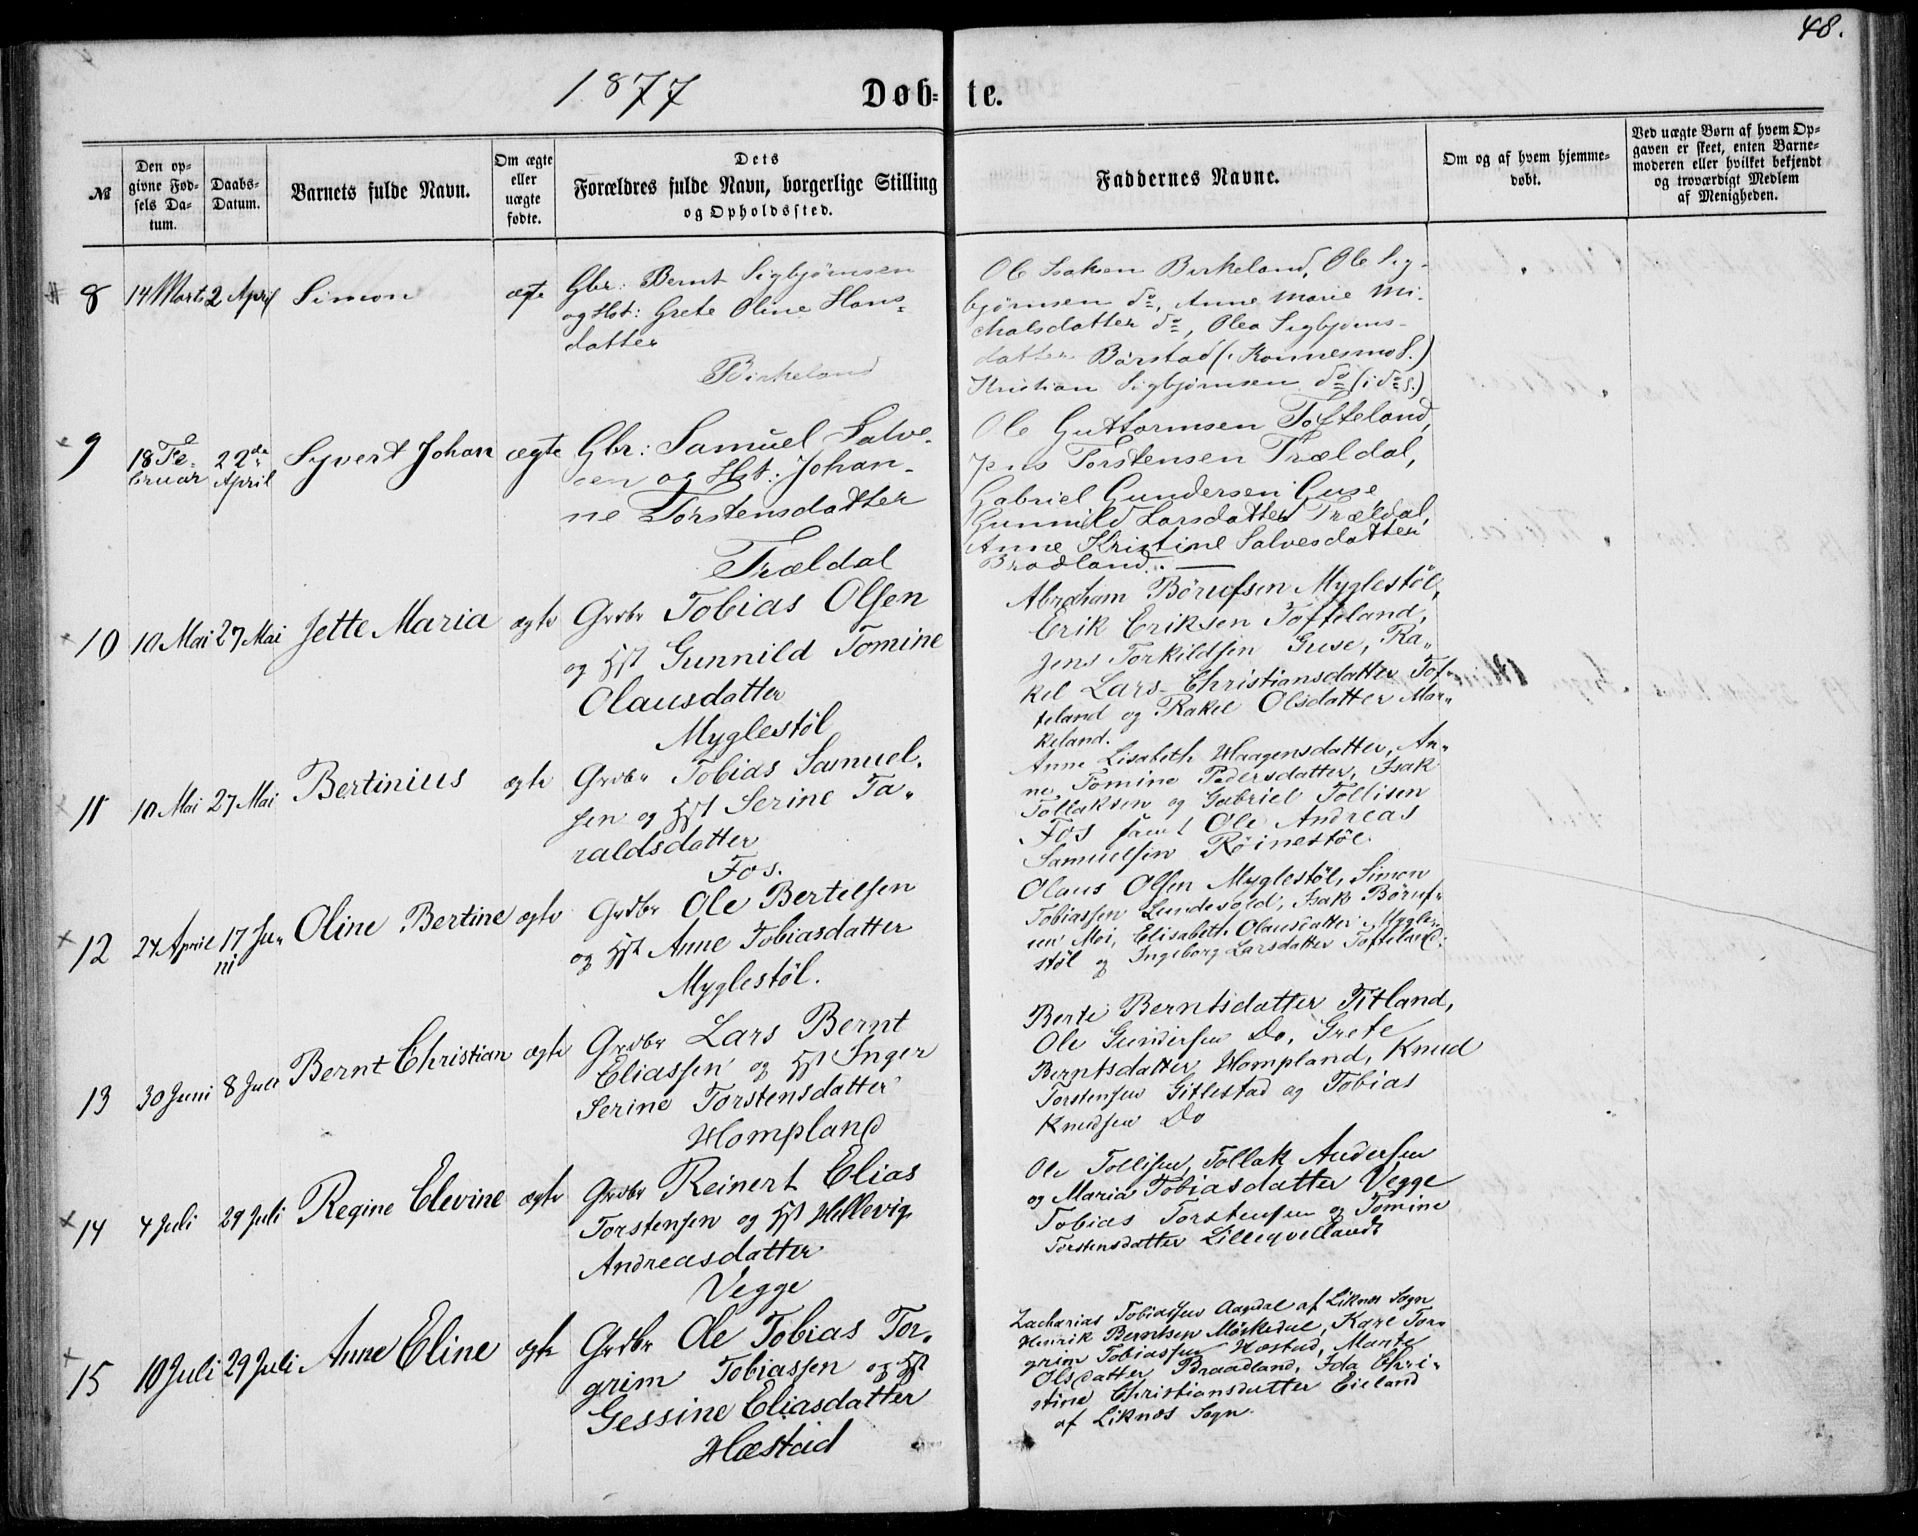 48.
1877
Døb= te.
№
Den op=
givne Fød=
sels Da=
tum.
Daabs=
Datum.
Barnets fulde Navn.
Om ægte
eller
uægte
fødte.
Dets
Forældres fulde Navn, borgerlige Stilling
og Opholdssted.
Faddernes Navne.
Om og af hvem hjemme=
døbt.
Ved uægte Børn af hvem Op=
gaven er skeet, enten Barne=
moderen eller hvilket bekjendt
og troværdigt Medlem
af Menigheden.
8
14 Marts
2 April
Simon
ægte
Gbr: Bernt Sigbjørnsen
og Hst: Grete Oline Hans=
datter
Birkeland
Ole Isaksen Birkeland, Ole Sig-
bjørnsen do, Anne Marie Mi-
chalsdatter do, Olea Sigbjørns-
datter Bårstad (i Konnesmo S.)
Kristian Sigbjørnsen do (i do S.)
9
18 Fe-
bruar
22de
April
Syvert Johan
ægte
Gbr: Samuel Salve-
sen og Hst: Johan-
ne Torstensdatter
Trældal
Ole Guttormsen Tofteland,
Jens Torstensen Trældal,
Gabriel Gundersen Guse
Gunnild Larsdatter Trældal,
Anne Kristine Salvesdatter
Bradland.
10
10 Mai
27 Mai
Jette Maria
ægte
Grdbr Tobias Olsen
og Hst Gunnild Tomine
Olausdatter
Myglestöl
Abraham Börufsen Myglestöl,
Erik Eriksen Tofteland,
Jens Torkildsen Guse, Ra„
kel Lars Christiansdatter Tof„
teland og Rakel Olsdatter Mar„
keland.
11
10 Mai
27 Mai
Bertinius
ægte
Grdbr Tobias Samuel„
sen og Hst Serine Ta„
raldsdatter
Fos.
Anne Lisabeth Haagensdatter, An„
ne Tomine Pedersdatter, Isak
Tollaksen og Gabriel Tollisen
Fos samt Ole Andreas
Samuelsen Röinestöl.
12
24 April
17 Ju„
ni
Oline Bertine
ægte
Grdbr Ole Bertelsen
og Hst Anne Tobiasdatter
Myglestöl.
Olaus Olsen Myglestöl, Simon
Tobiassen Lundevold, Isak Böruf„
sen Moi, Elisabeth Olausdatter Mygle„
stöl og Ingeborg Larsdatter Tofteland.
13
30 Juni
8 Juli
Bernt Christian
ægte
Grdbr Lars Bernt
Eliassen og Hst Inger
Serine Torstensdatter
Hompland
Berte Berntsdatter Titland,
Ole Gundersen Do, Grete
Berntsdatter Hompland, Knud
Torstensen Gitlestad og Tobias
Knudsen Do
14
4 Juli
29 Juli
Regine Elevine
ægte
Grdbr Reinert Elias
Torstensen og Hst Hellevig
Andreasdatter
Vegge
Ole Tollisen, Tollak Andersen
og Maria Tobiasdatter Vegge
Tobias Torstensen og Tomine
Torstensdatter Lilleqvelland
15
10 Juli
29 Juli
Anne Eline
ægte
Grdbr Ole Tobias Tor„
grim Tobiassen og Hst
Gessine Eliasdatter
Hæstad
Zacharias Tobiassen Aagdal af Liknes Sogn
Henrik Berntsen Möskedal, Karl Tor„
grim Tobiassen Hæstad, Marte
Olsdatter Braadland, Ida Chri„
stine Christiansdatter Eieland
af Liknes Sogn.